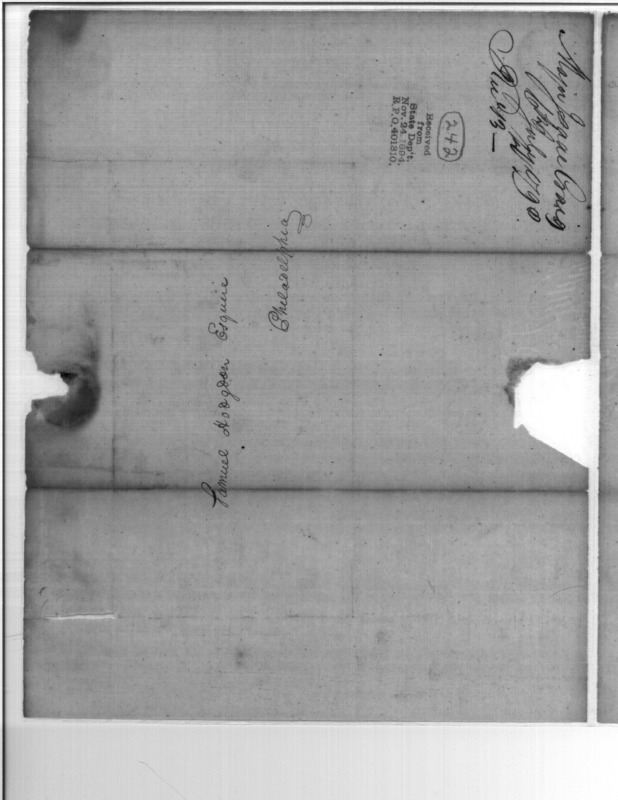 Major Isaac Craig
1790
242
Received
from
State Dep't.
Nov. 24, 1894.
R.P.O. 401310.
Samuel Hodgdon Esquire
Philadelphia